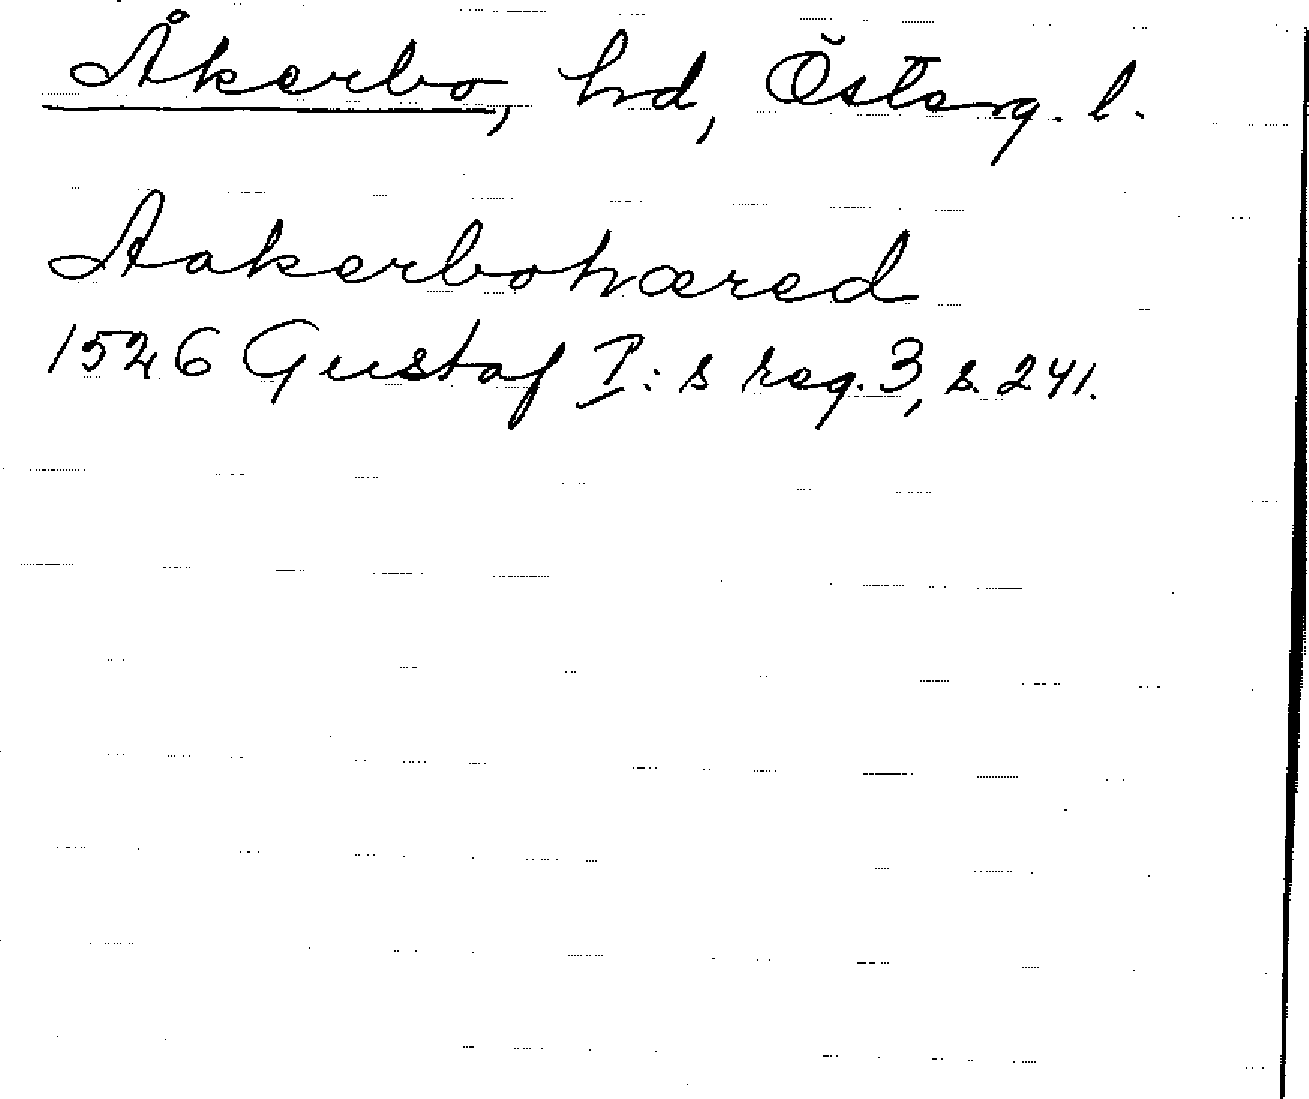 Åkerbo, hd, Österg. l.
Aakerbohæred
1526 Gustaf I:s reg. 3, s. 241.